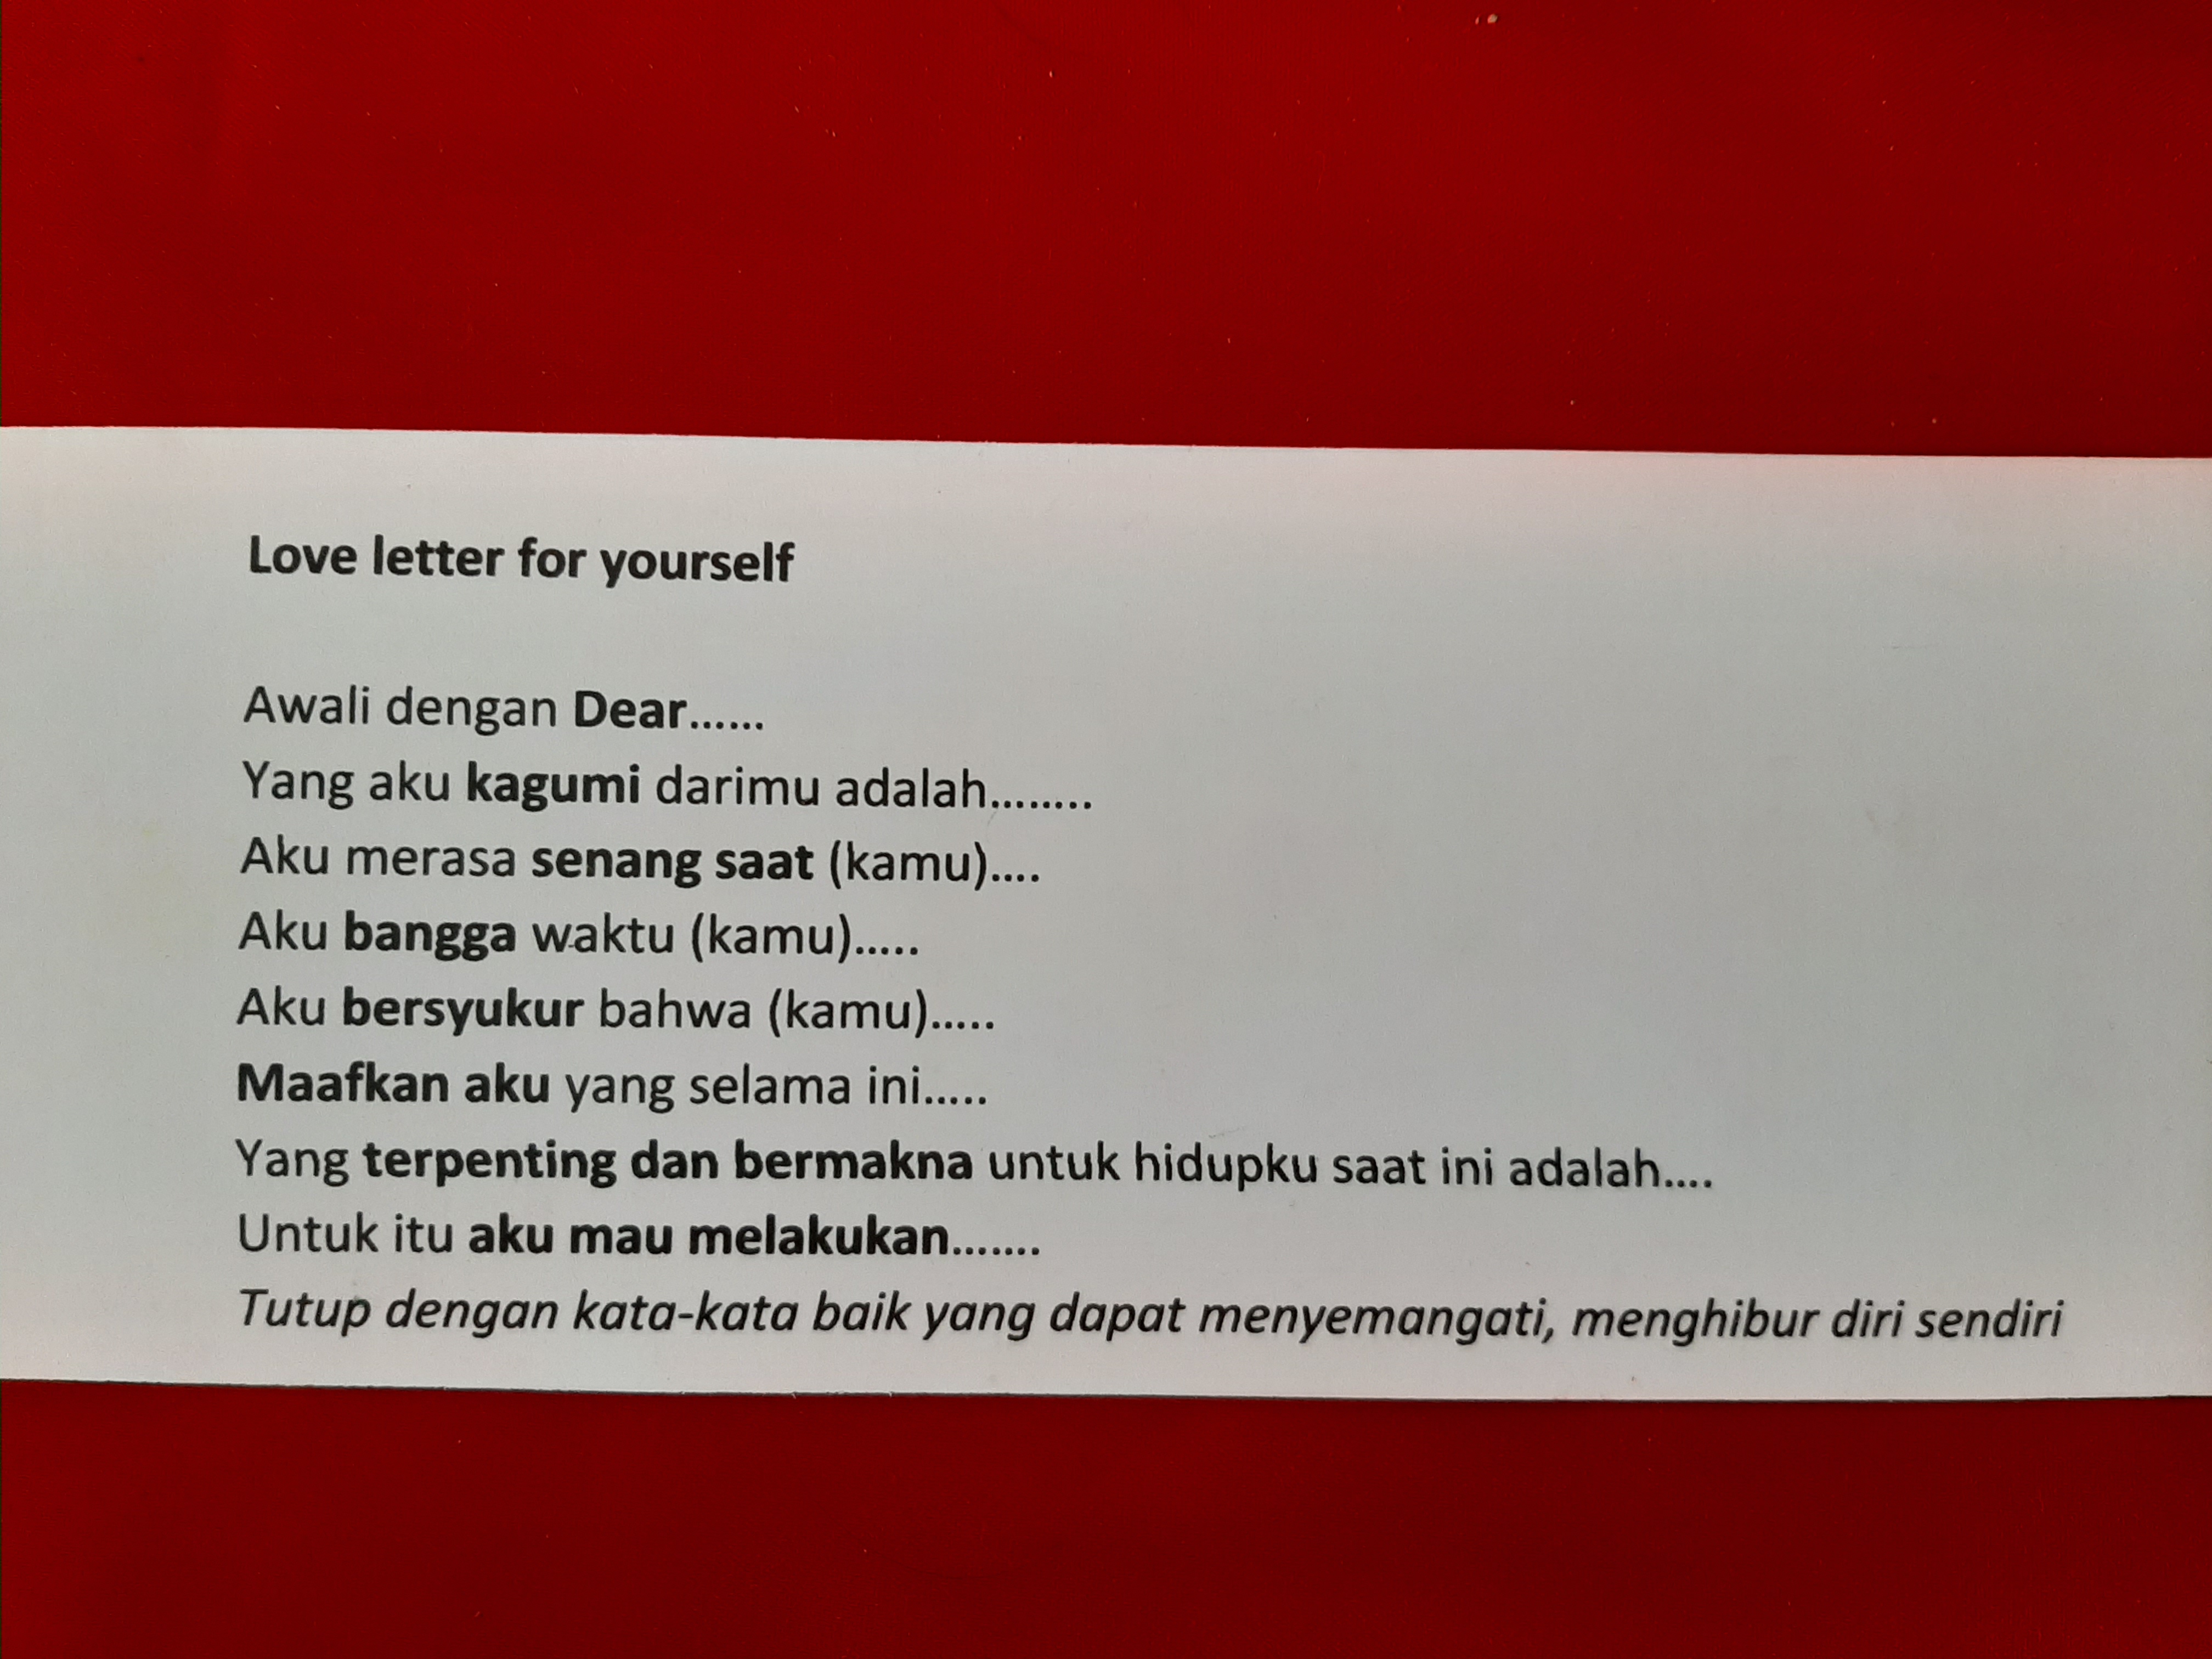 Love letter for yourself
Awali dengan Dear......
Yang aku kagumi darimu adalah........
Aku merasa senang saat (kamu)....
Aku bangga waktu (kamu).....
Aku bersyukur bahwa (kamu).....
Maafkan aku yang selama ini.....
Yang terpenting dan bermakna untuk hidupku saat ini adalah....
Untuk itu aku mau melakukan.......
Tutup dengan kata-kata baik yang dapat menyemangati, menghibur diri sendiri